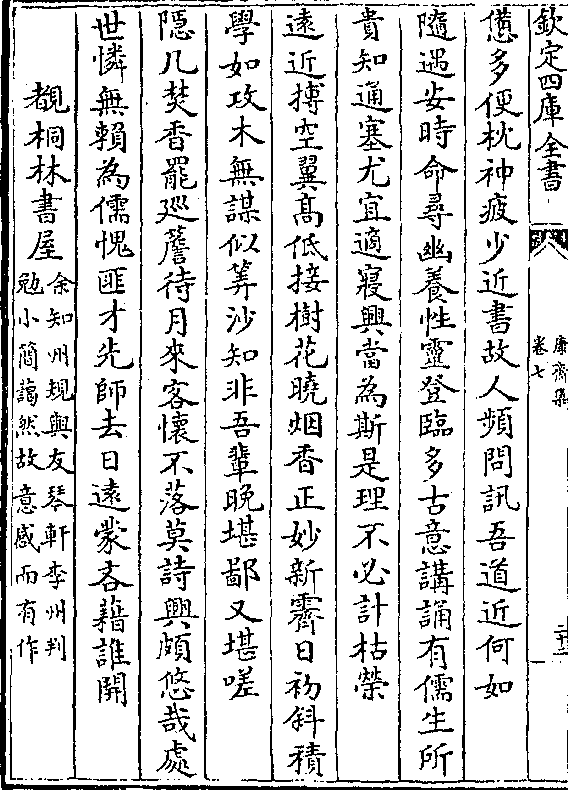 欽定四庫全書
康齋集
卷七
憊多便枕神疲少近書故人頻問訊吾道近何如
隨遇安時命尋幽養性靈登臨多古意講誦有儒生所
貴知通塞尤宜適寢興當為斯是理不必計枯榮
遠近摶空翼髙低接樹花曉烟香正妙新霽日初斜積
學如攻木無謀似筭沙知非吾輩晚堪鄙又堪嗟
隱几焚香罷廵簷待月來客懷不落莫詩興頗悠哉處
世憐無賴為儒愧匪才先師去日遠蒙吝藉誰開
覩桐林書屋
余知州規與友琴軒李州判
勉小簡藹然故意感而有作